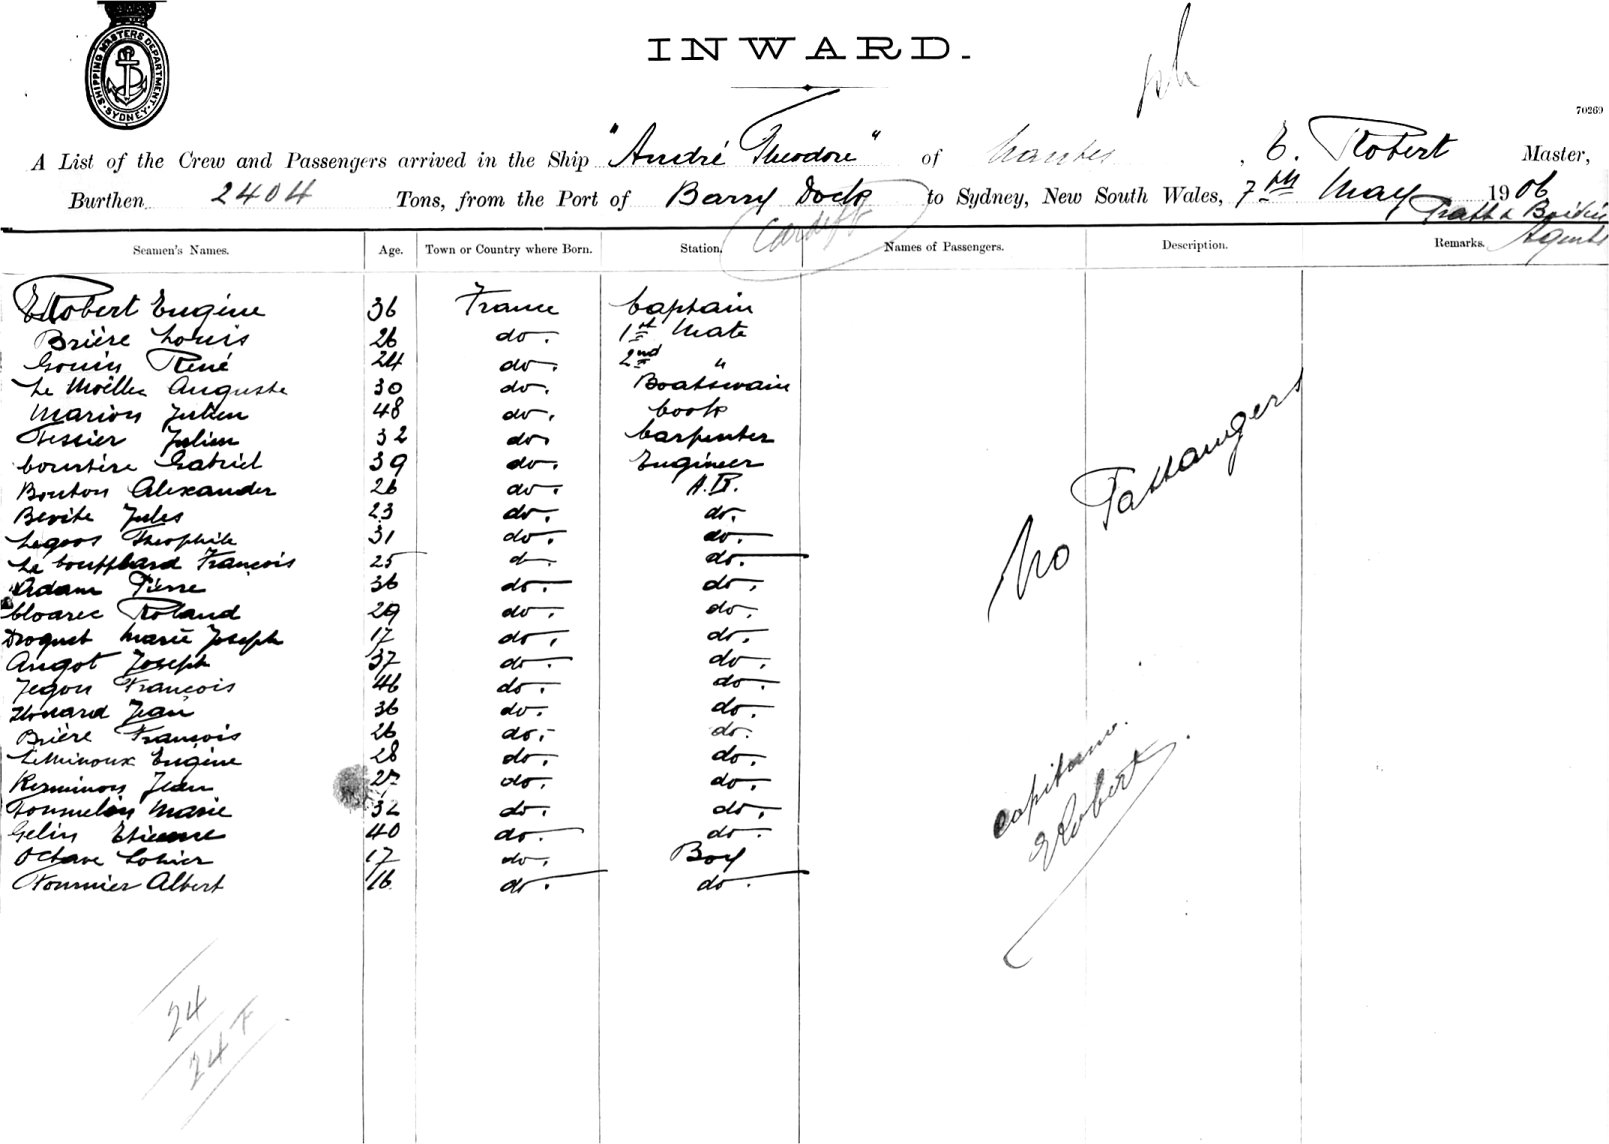 SHIPPING MASTERS DEPARTMENT. SYDNEY.
INWARD.
70269
A List of the Crew and Passengers arrived in the Ship "André Theodore" of Nantes, E. Robert Master,
Burthen 2404 Tons, from the Port of Barry Dock to Sydney, New South Wales, 7th May 1906
Cardiff
Agents
Seamen's Names. Age. Town or Country where Born. Station. Names of Passengers. Description. Remarks.
ERobert Eugène 36 France Captain
Brière Louis 26 do. 1st Mate
Gouin René 24 do. 2nd "
Le Moëllec Auguste 30 do. Boatswain
Marion Julien 48 do. Cook
Tessier Julien 32 do. Carpenter
Gabriel 39 do. Engineer
Bouton Alexander 26 do. A.B.
Jules 23 do. do.
Legoos Theophile 31 do. do.
François 25 do. do.
Adam Pierre 36 do. do.
Cloarec Roland 29 do. do.
Droguet Marie Joseph 17 do. do.
Angot Joseph 37 do. do.
Jegou François 46 do. do.
Houard Jean 36 do. do.
Brière François 26 do. do.
Leminoux Eugène 28 do. do.
Jean 27 do. do.
Tournelin Marie 32 do. do.
Gelin Etienne 40 do. do.
Octave Lohier 17 do. Boy
Fournier Albert 16 do. do.
No Passangers
Capitaine.
ERobert
24
24 F